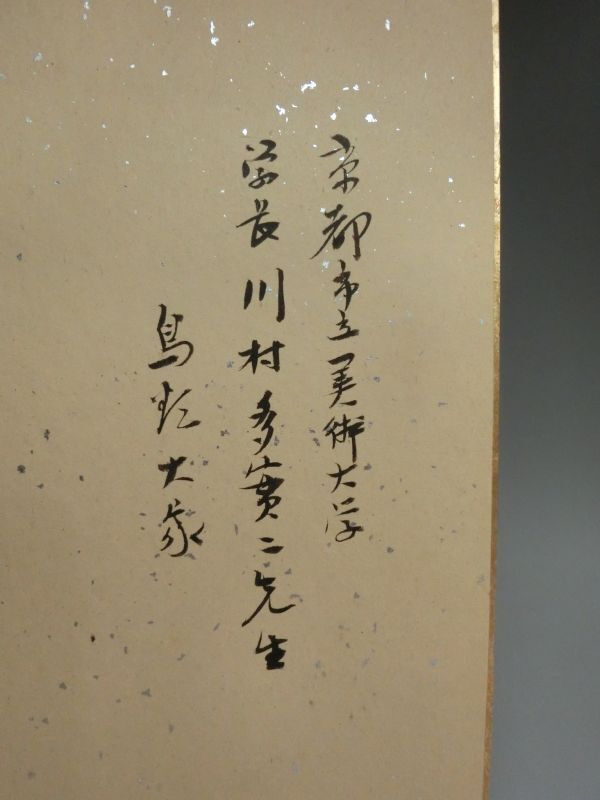 京都市立美術大学
学長川村多實二先生
鳥類大家